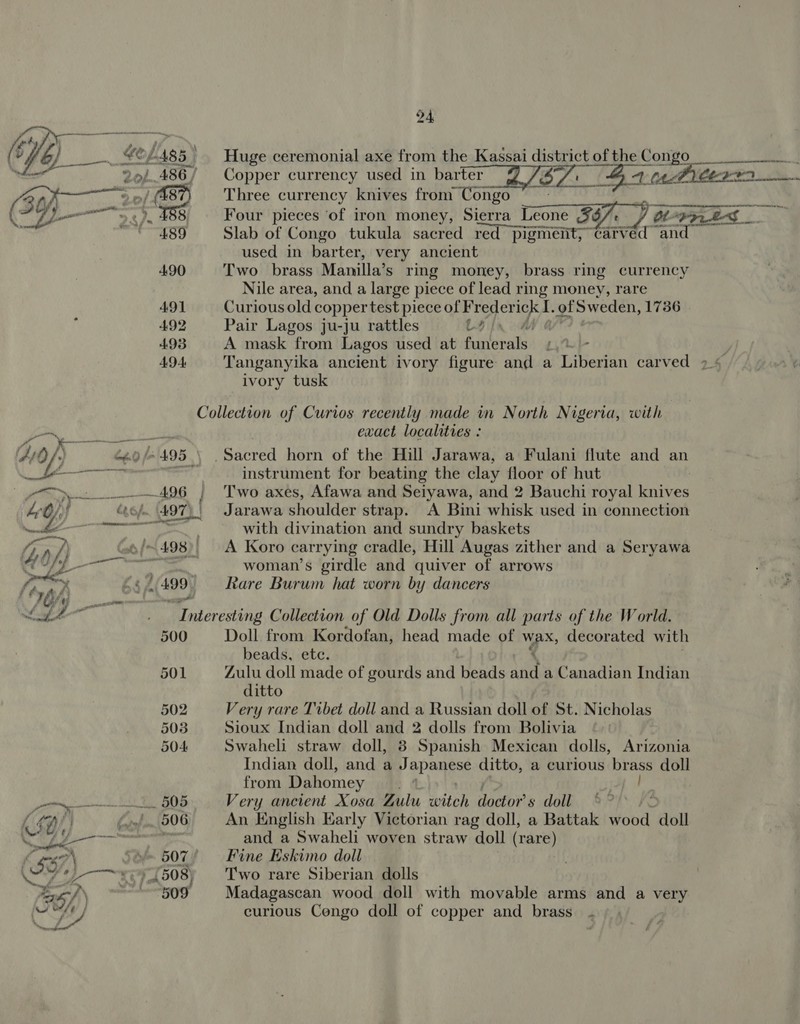 24
485 Huge ceremonial axe from the Kassai district of the Congo
486 Copper currency used in barter
487 Three currency knives from Congo
488 Four pieces of iron money, Sierra Leone
489 Slab of Congo tukula sacred red pigment, carved and
used in barter, very ancient
490 Two brass Manilla's ring money, brass ring currency
Nile area, and a large piece of lead ring money, rare
491 Curious old copper test piece of Frederick I. of Sweden, 1736
492 Pair Lagos ju-ju rattles
493 A mask from Lagos used at funerals
494 Tanganyika ancient ivory figure and a Liberian carved
ivory tusk
Collection of Curios recently made in North Nigeria, with
exact localities :
495 Sacred horn of the Hill Jarawa, a Fulani flute and an
instrument for beating the clay floor of hut
496 Two axes, Afawa and Seiyawa, and 2 Bauchi royal knives
497 Jarawa shoulder strap. A Bini whisk used in connection
with divination and sundry baskets
498 A Koro carrying cradle, Hill Augas zither and a Seryawa
woman's girdle and quiver of arrows
499 Rare Burum hat worn by dancers
Interesting Collection of Old Dolls from all parts of the World.
500 Doll from Kordofan, head made of wax, decorated with
beads, etc.
501 Zulu doll made of gourds and beads and a Canadian Indian
ditto
502 Very rare Tibet doll and a Russian doll of St. Nicholas
503 Sioux Indian doll and 2 dolls from Bolivia
504 Swaheli straw doll, 3 Spanish Mexican dolls, Arizonia
Indian doll, and a Japanese ditto, a curious brass doll
from Dahomey
505 Very ancient Xosa Zulu witch doctor's doll
506 An English Early Victorian rag doll, a Battak wood doll
and a Swaheli woven straw doll (rare)
507 Fine Eskimo doll
508 Two rare Siberian dolls
509 Madagascan wood doll with movable arms and a very
curious Congo doll of copper and brass